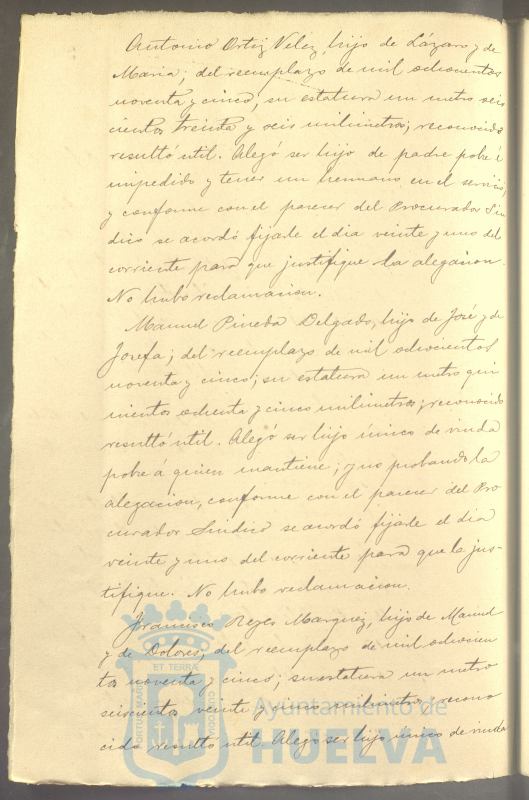 Antonio Ortiz Velez, hijo de Lázaro y de
Maria; del reemplazo de mil ochocientos
noventa y cinco, su estatura un metro seis
cientos treinta y seis milimetros; reconocido
resultó util. Alegó ser hijo de padre pobre é
impedido y tener un hermano en el servicio,
y conforme con el parecer del Procurador Sin
dico se acordó fijarle el dia veinte y uno del
corriente para que justifique la alegacion.
No hubo reclamacion.
Manuel Pineda Delgado, hijo de José y de
Josefa; del reemplazo de mil ochocientos
noventa y cinco; su estatura un metro qui
nientos ochenta y cinco milimetros; reconocido
resultó util. Alegó ser hijo único de viuda
pobre á quien mantiene; y no probando la
alegacion, conforme con el parecer del Pro
curador Sindico se acordó fijarle el dia
veinte y uno del corriente para que la jus-
tifique. No hubo reclamacion.
Francisco Reyes Marquez, hijo de Manuel
y de Dolores; del reemplazo de mil ochocien
tos noventa y cinco; su estatura un metro
seiscientos veinte y milimetros, recono
cido resultó util. Alegó ser hijo único de viuda
ET TERRÆ
PORTUS MARIS
CUSTODIA
Ayuntamiento de
HUELVA